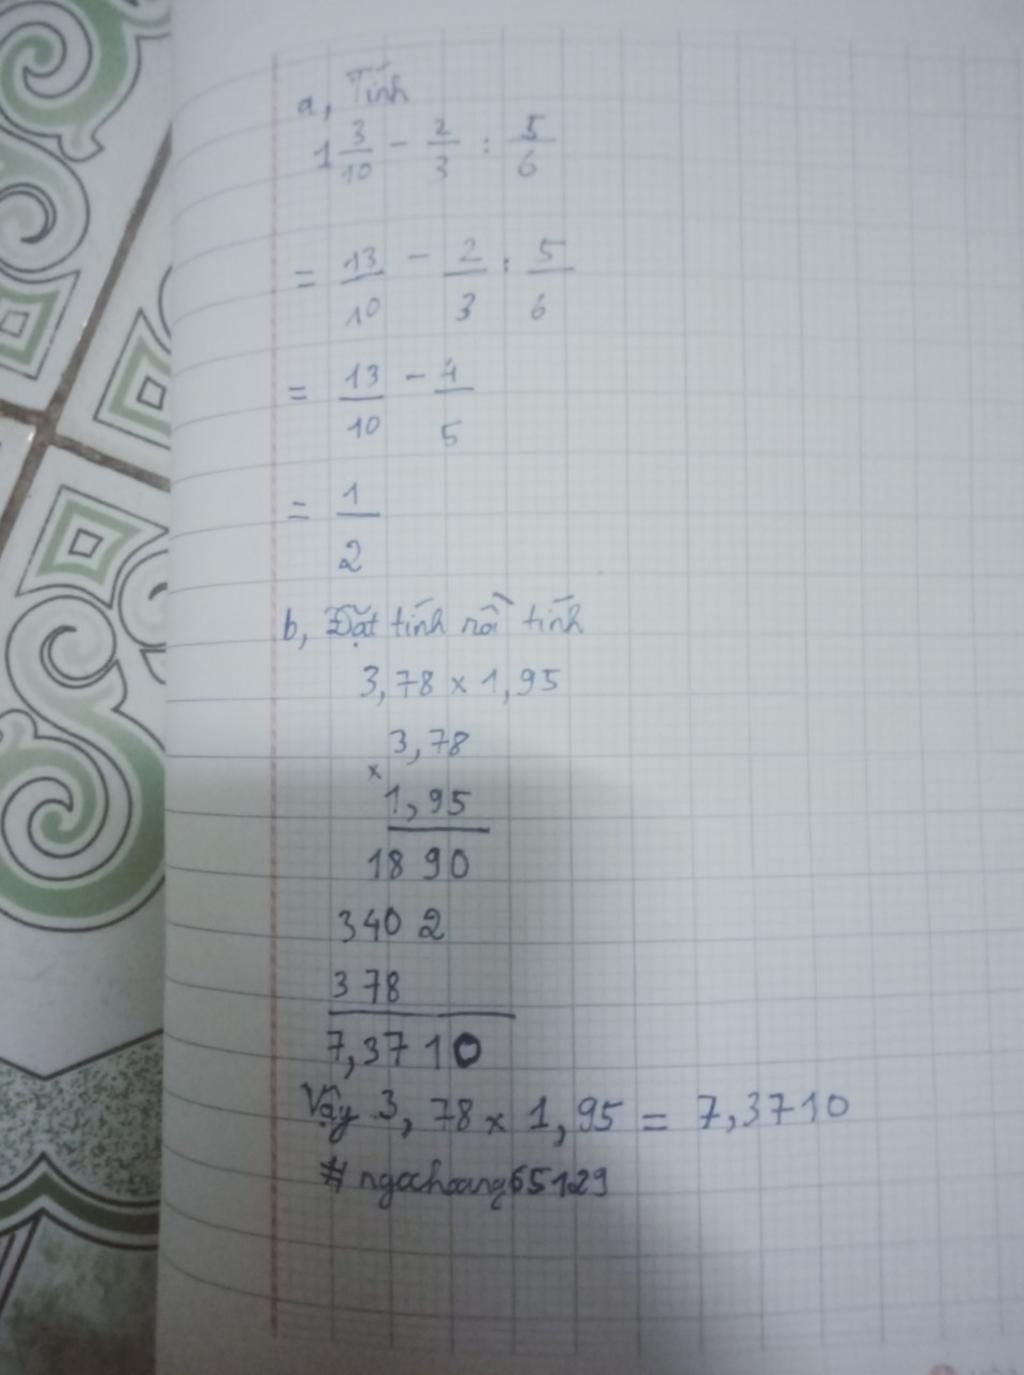 a, Tính
1 3/10 - 2/3 : 5/6
= 13/10 - 2/3 : 5/6
= 13/10 - 4/5
= 1/2
b, Đặt tính rồi tính
3,78 x 1,95
3,78
x
1,95
1890
3402
378
7,3710
Vậy 3,78 x 1,95 = 7,3710
# ngochoang65129